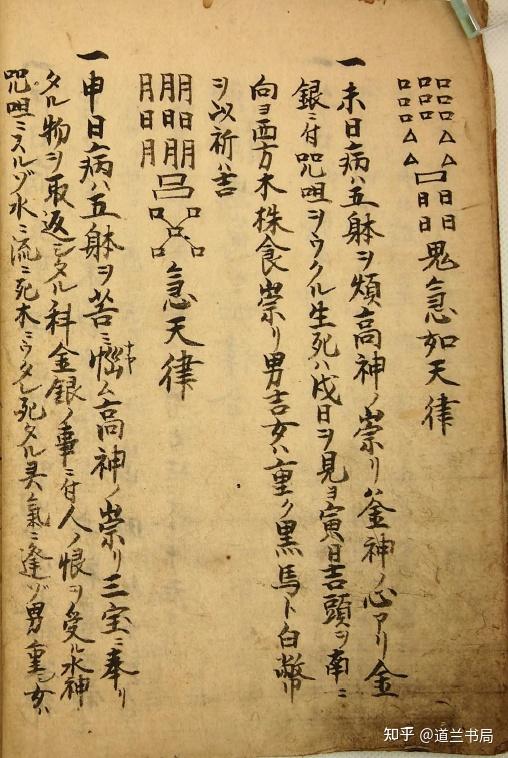 鬼急如天律
一未日病ハ五躰ヲ煩高神ノ崇リ釜神ノ心アリ金
銀ニ付咒咀ヲウクル生死ハ戌日ヲ見ヨ寅日吉頭ヲ南ニ
向ヨ西方木株食崇リ男吉女ハ重ク黒馬ト白幣
ヲ以祈ハ吉
急天律
一申日病ハ五躰ヲ苦ミ悩ム高神ノ崇リ三宝ニ奉リ
タル物ヲ取返シタル科金銀ノ事ニ付人ノ恨ヲ受ル水神
咒咀ミスルゾ水ニ流ニ死木ニウタレ死タル灵氣ニ逢ゾ男重シ女ハ
知乎 @道兰书局